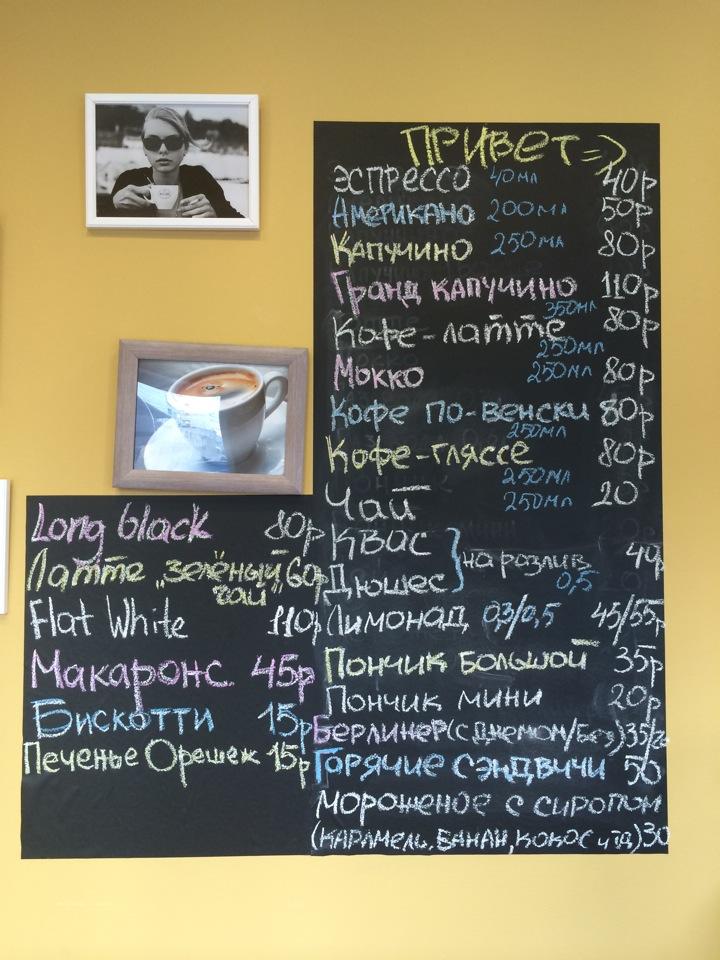 ПРИВЕТ=>
ЭСПРЕССО 40мл 40р
Американо 200мл 50р
Капучино 250мл 80р
Гранд капучино 350мл 110р
Кофе-латте 250мл 80р
Мокко 250мл 80р
Кофе по-венски 250мл 80р
Кофе-гляссе 250мл 80р
Чай 250мл 20
Квас
Дюшес } на розлив 0,5
Лимонад 0,3/0,5 45/55р
Пончик большой 35р
Пончик мини 20р
Берлинер (с джемом/без)
Горячие сэндвичи 50
Мороженое с сиропом
(КАРАМЕЛЬ, БАНАН, КОКОС и тд) 30
Long black 80р
Латте "зелёный чай" 60р
Flat White 110р
Макаронс 45р
Бискотти 15р
Печенье Орешек 15р